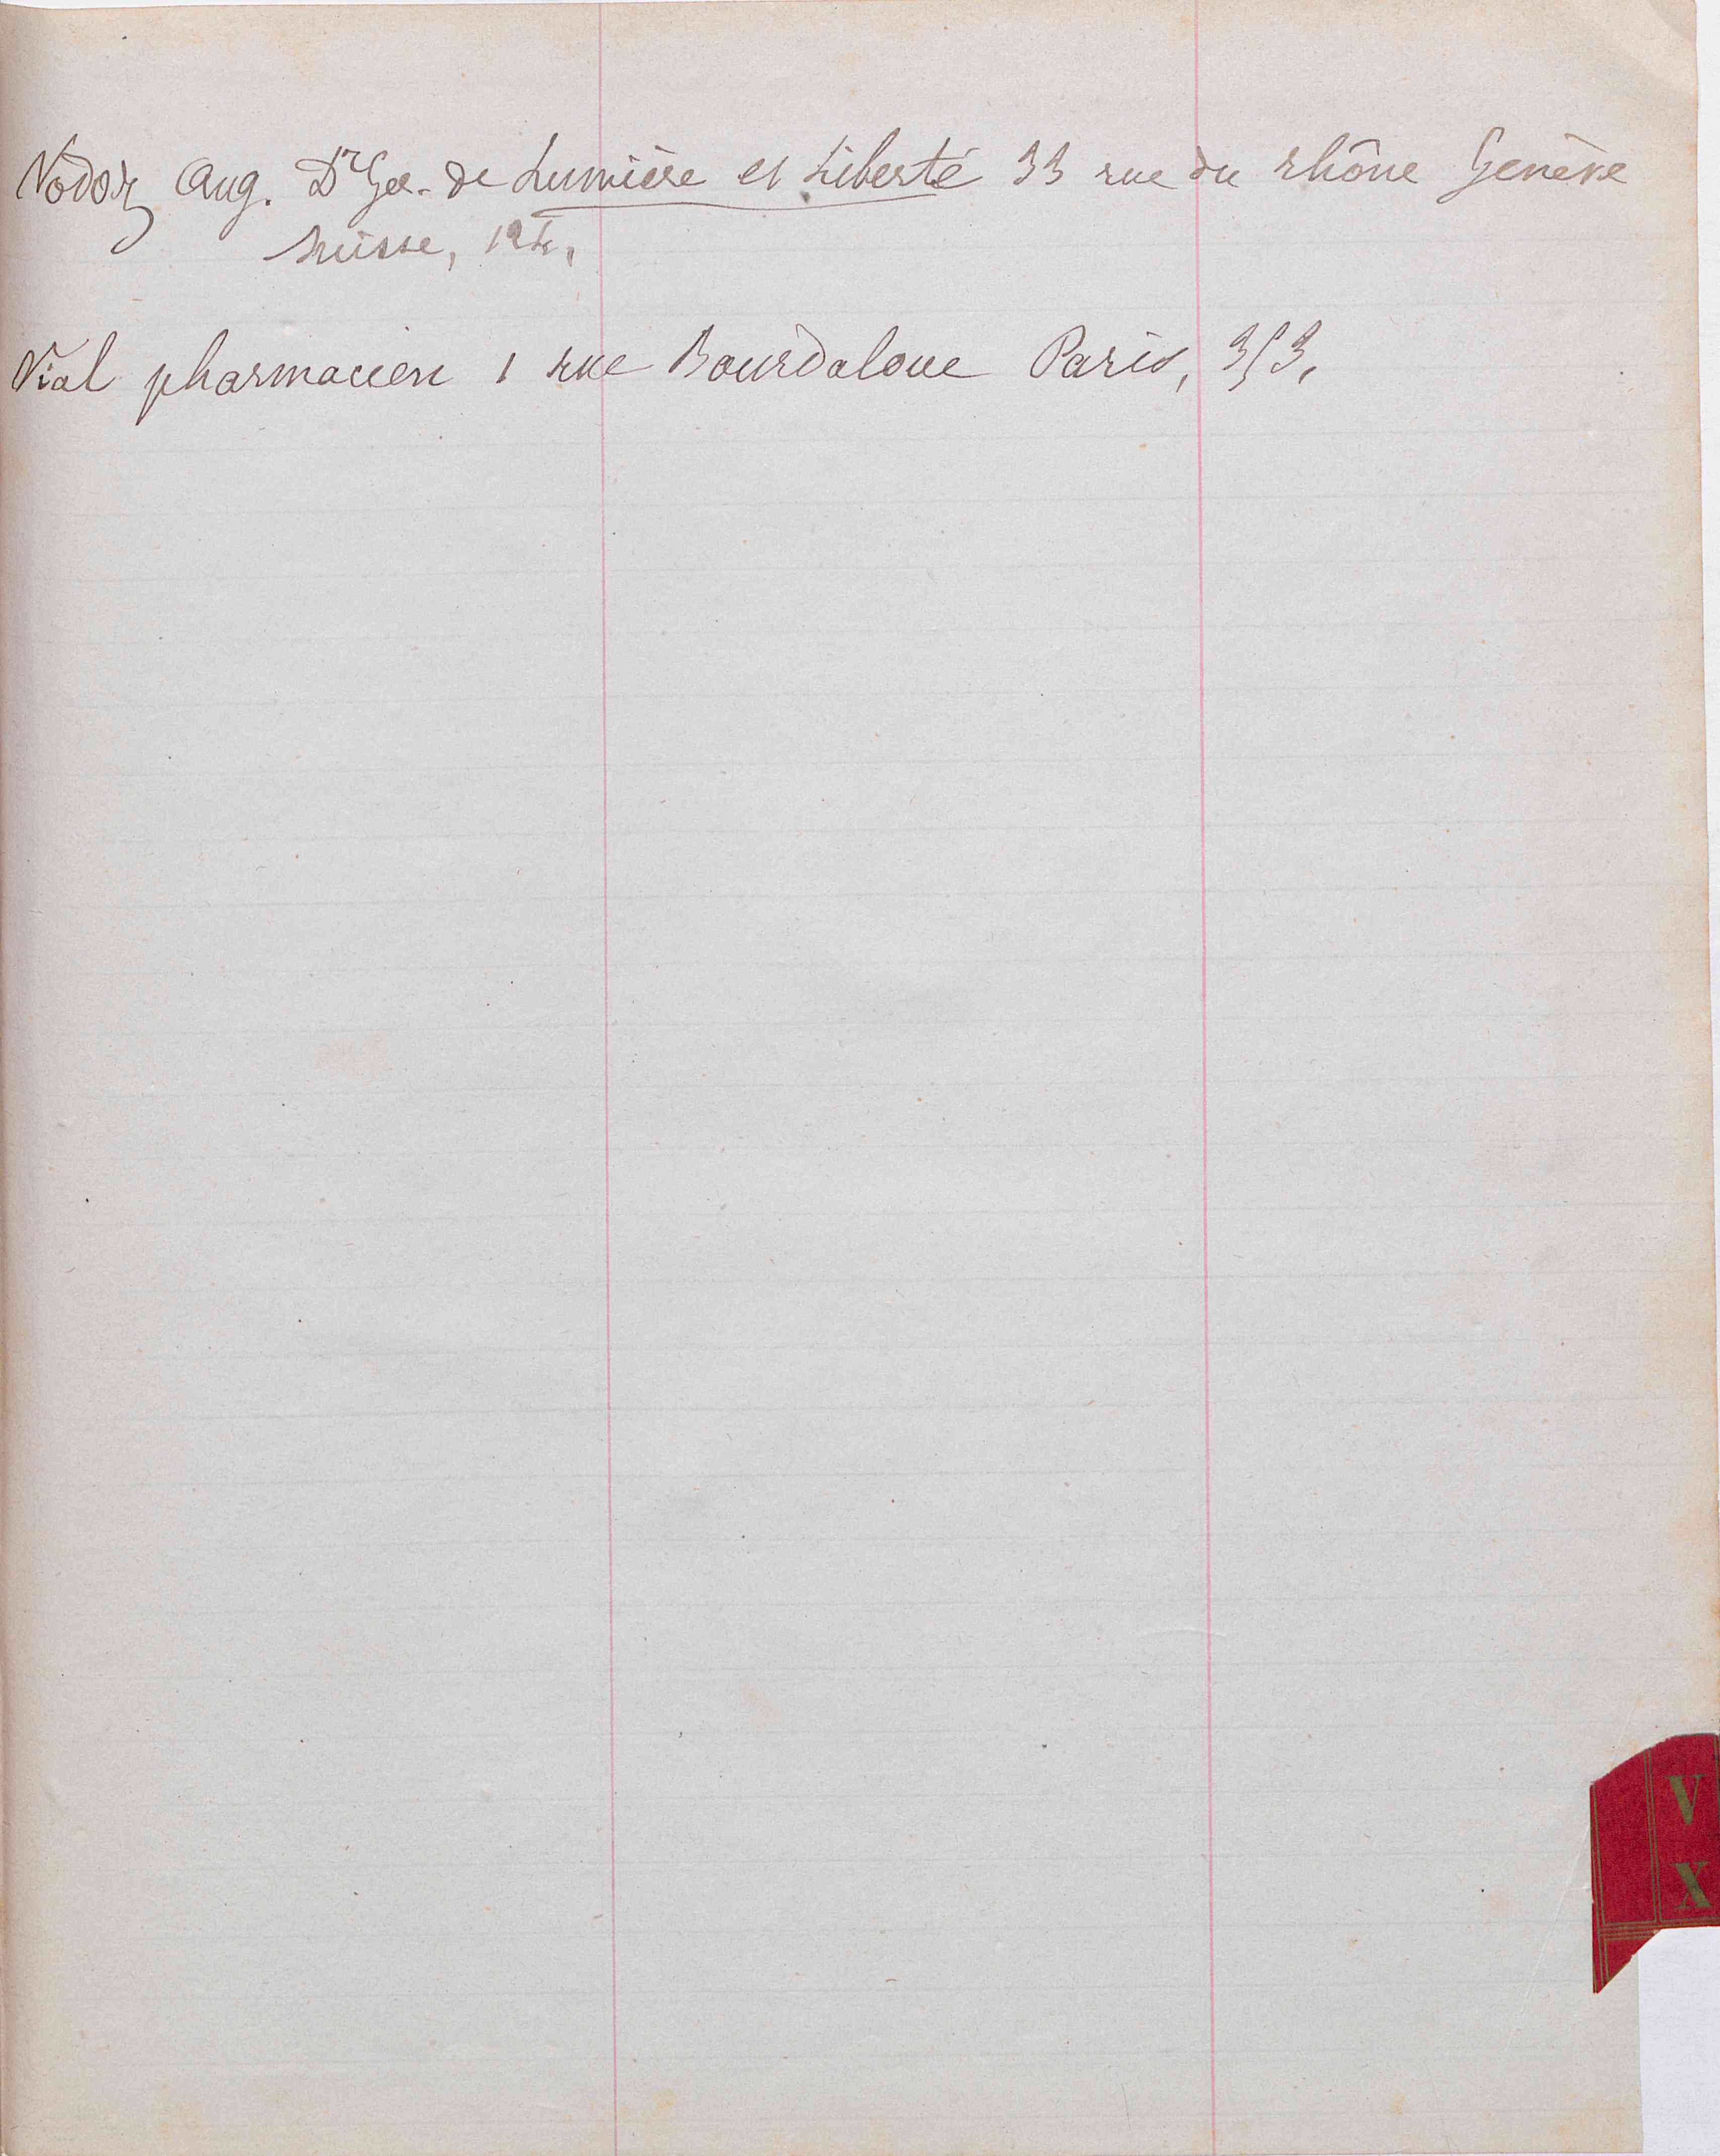 Vodoz Aug. Dr Gér. de Lumière et Liberté 33 rue du Rhône Genève
Suisse, 124,
Vial pharmacien 1 rue Bourdaloue Paris, 353,
V
X